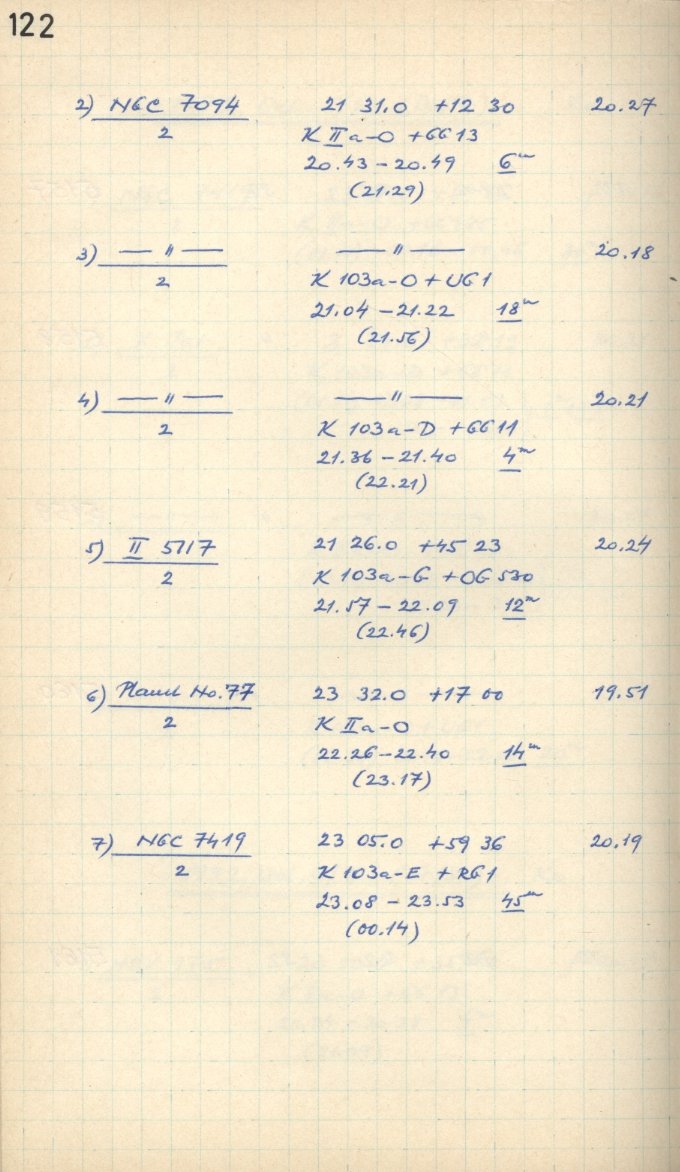 122
2) NGC 7094 21 31.0 +12 30 20.27
2 K IIa-O +GG13
20.43 – 20.49 6m
(21.29)
3) — " — — " — 20.18
2 K 103a-O + UG1
21.04 – 21.22 18m
(21.56)
4) — " — — " — 20.21
2 K 103a-D +GG11
21.36 – 21.40 4m
(22.21)
5) II 5117 21 26.0 +45 23 20.24
2 K 103a-G +OG530
21.57 – 22.09 12m
(22.46)
6) No.77 23 32.0 +17 00 19.51
2 K IIa-O
22.26 – 22.40 14m
(23.17)
7) NGC 7419 23 05.0 +59 36 20.19
2 K 103a-E + RG1
23.08 – 23.53 45m
(00.14)